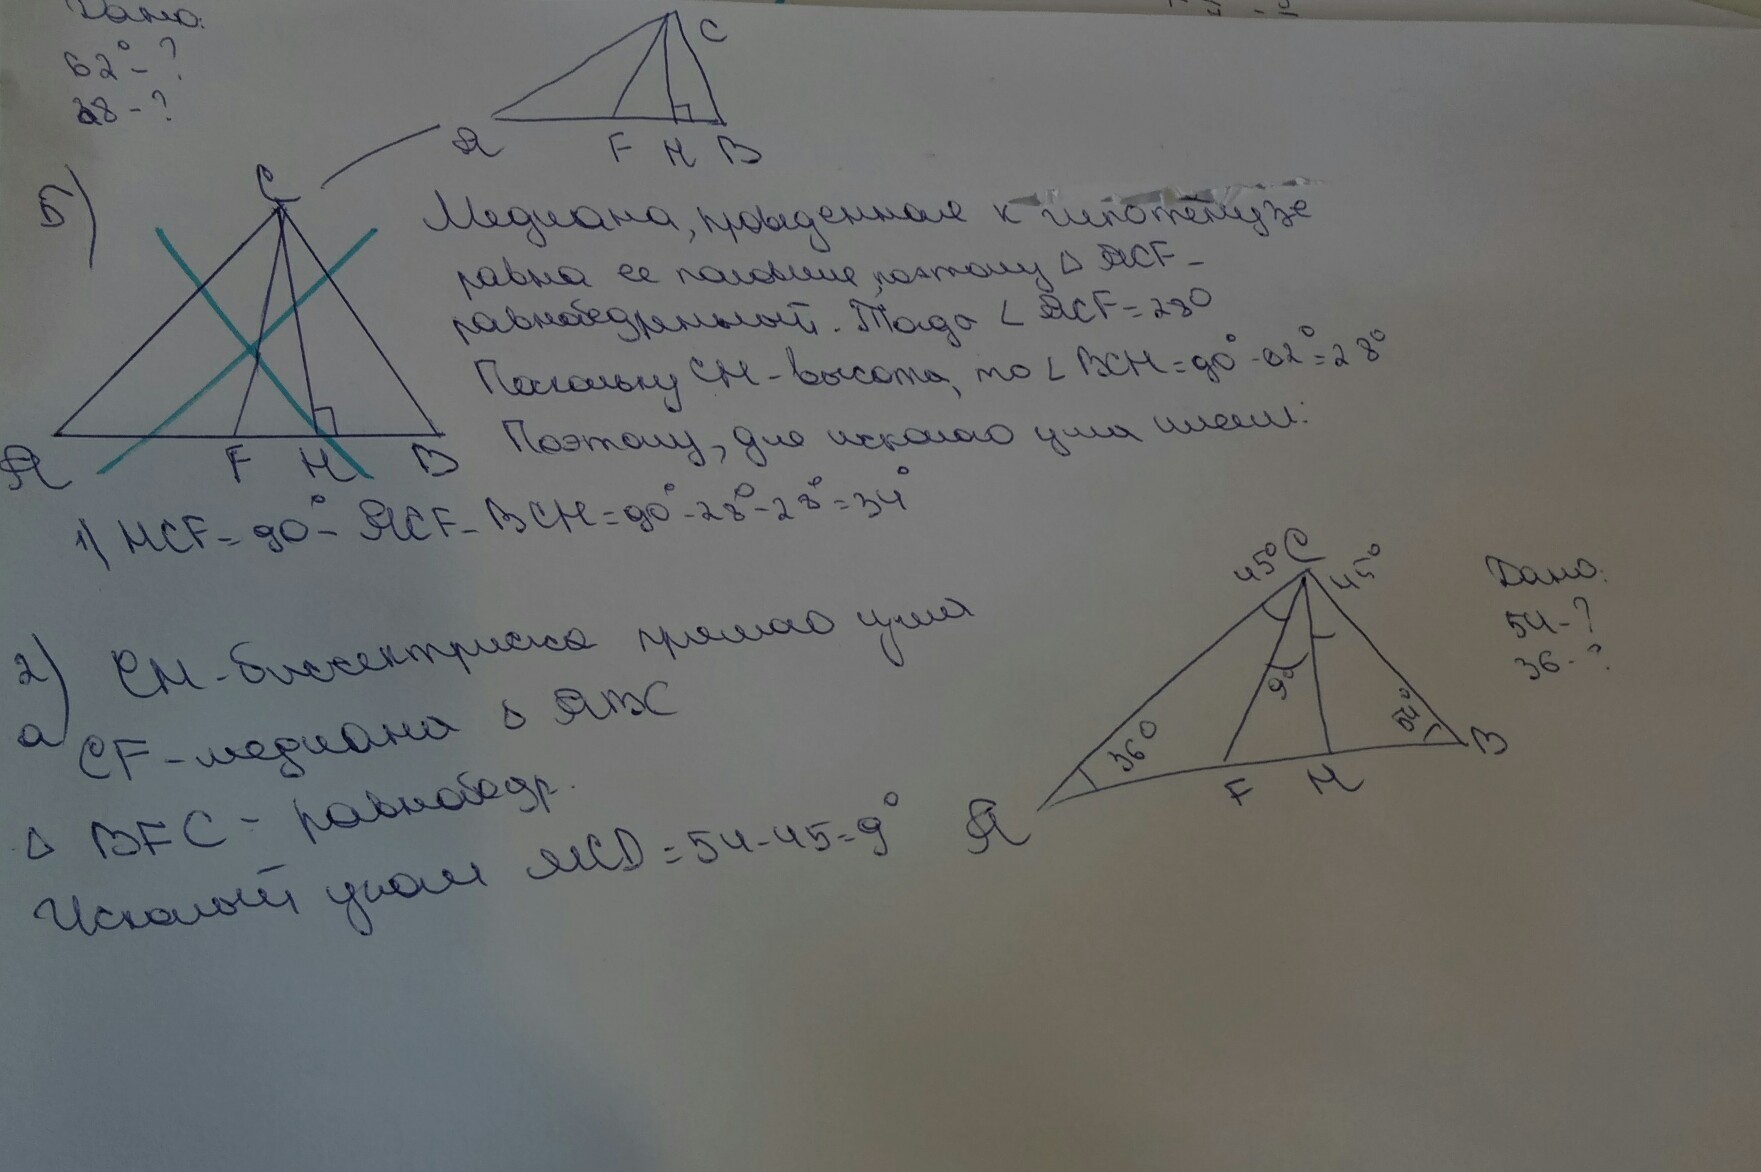 Дано:
62° - ?
28 - ?
C
A F H B
Б)
C
Медиана, проведенная к гипотенузе
равна ее половине, поэтому Δ ACF -
равнобедренный. Тогда ∠ ACF = 28°
Поскольку CH - высота, то ∠ BCH = 90° - 62° = 28°
Поэтому, для искомого угла имеем:
A F H B
1) HCF = 90° - ACF - BCH = 90° - 28° - 28° = 34°
45° C 45°
Дано:
54 - ?
36 - ?
2) CM - биссектриса прямого угла
а CF - медиана Δ ABC
Δ BFC - равнобедр.
Искомый угол MCD = 54 - 45 = 9°
36° 9° 54°
A F M B